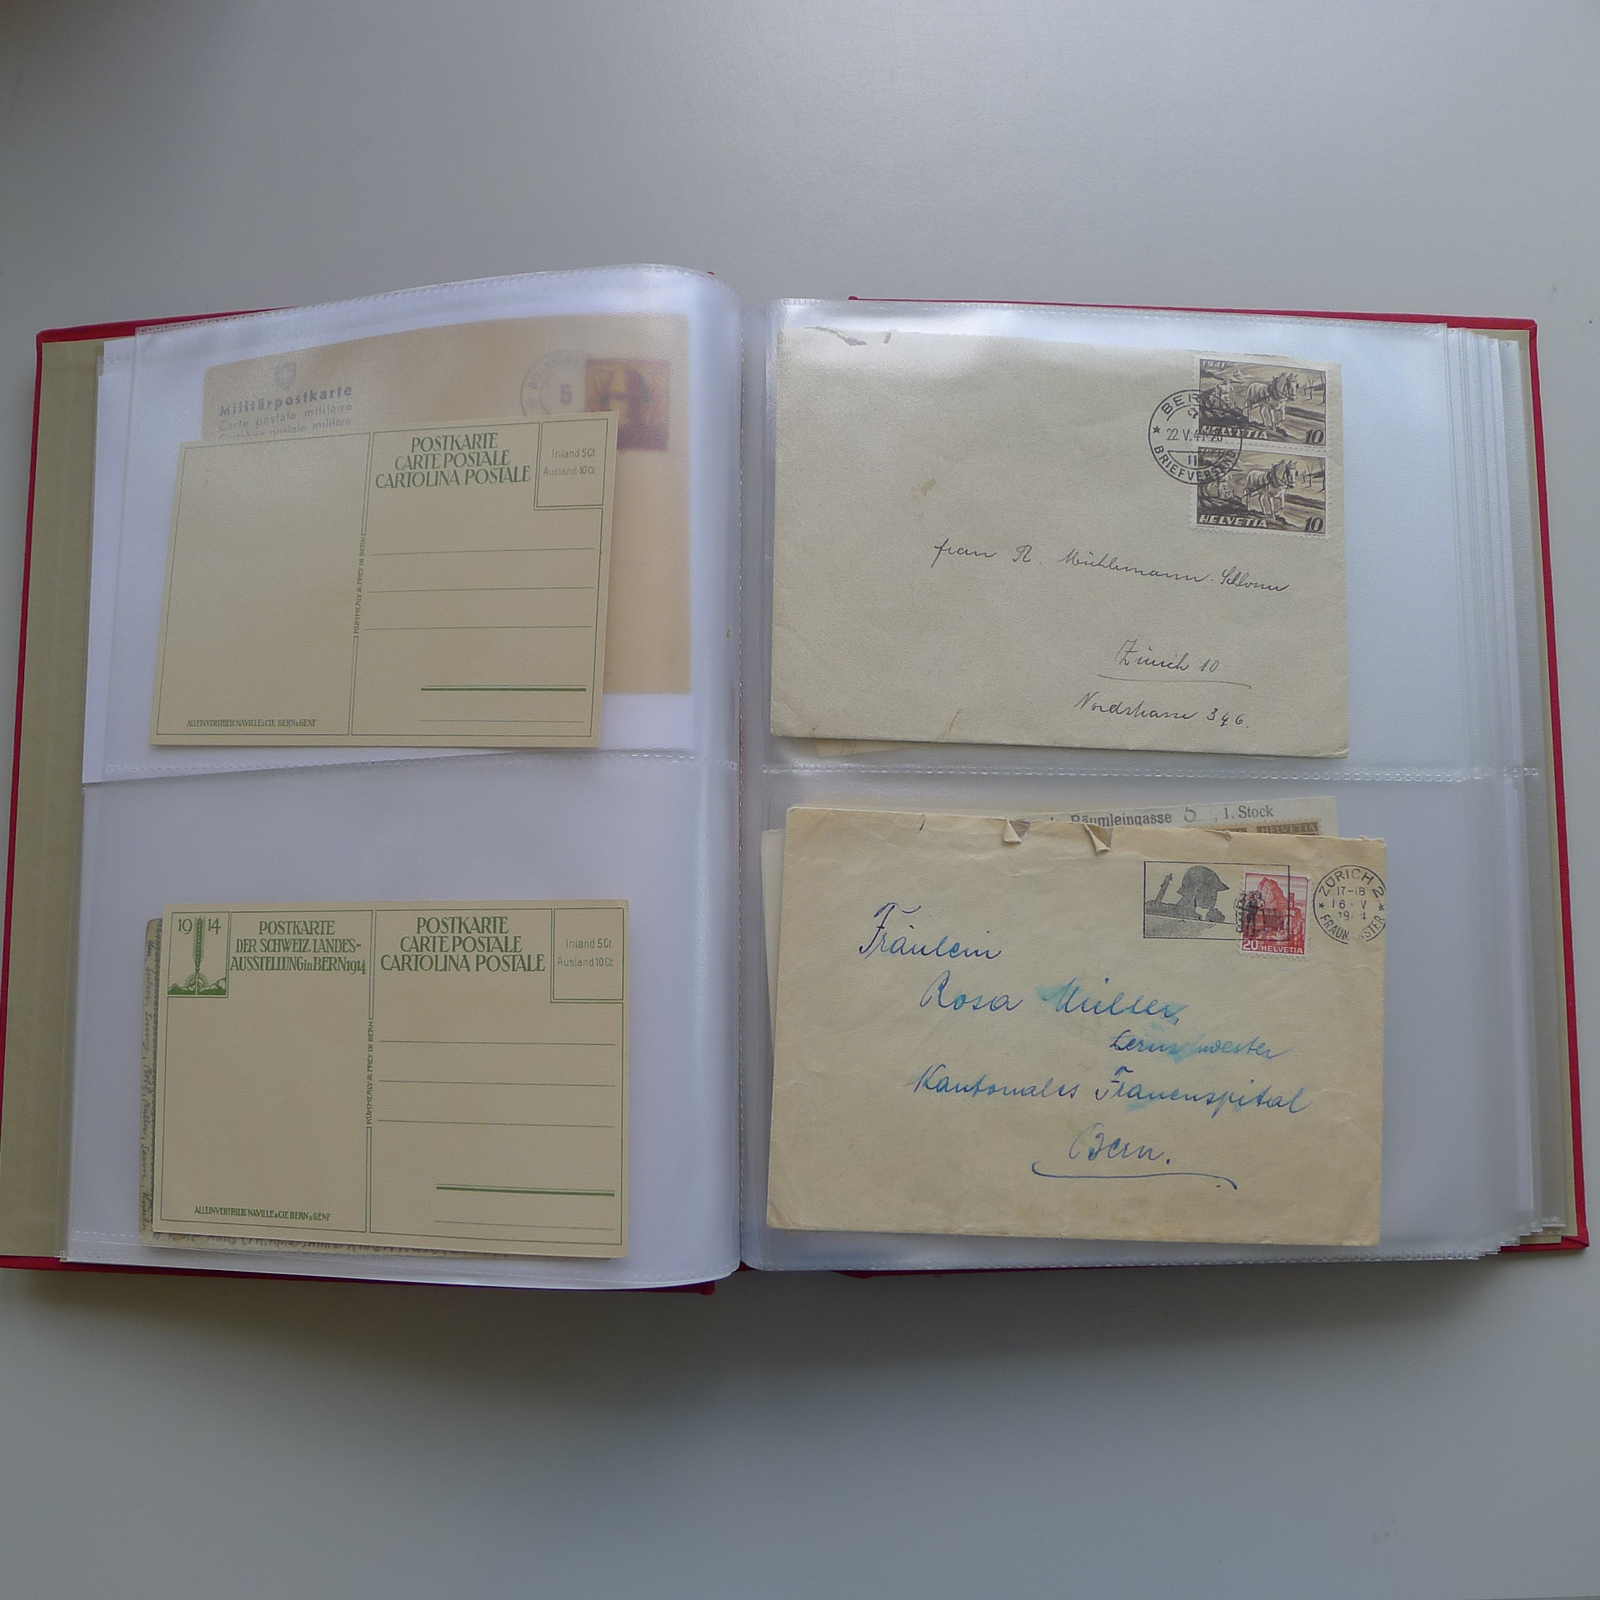 Militärpostkarte
Carte postale militaire
5
POSTKARTE
CARTE POSTALE
CARTOLINA POSTALE
Inland 5 Ct.
Ausland 10 Ct.
KÜMMERLY & FREY IN BERN
ALLEINVERTRIEB NAVILLE & CIE. BERN & GENF
1914
POSTKARTE
DER SCHWEIZ. LANDES-
AUSSTELLUNG in BERN 1914
POSTKARTE
CARTE POSTALE
CARTOLINA POSTALE
Inland 5 Ct.
Ausland 10 Ct.
KÜMMERLY & FREY IN BERN
ALLEINVERTRIEB NAVILLE & CIE. BERN & GENF
1941
HELVETIA 10
HELVETIA 10
22.V.41-20
BRIEFVERSAND
Frau R.
Zürich 10
Nordstrasse 346.
Räumleingasse 5, 1. Stock
HELVETIA
20 HELVETIA
ZÜRICH 2
17-18
16 V
Fräulein
Rosa Müller,
Lernschwester
Kantonales Frauenspital
Bern.